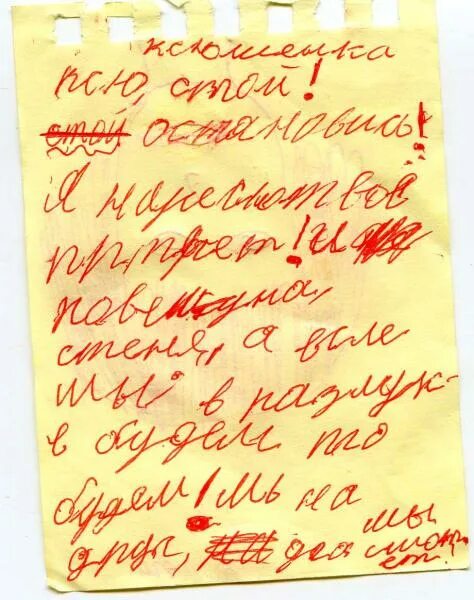 ксюшенька
ксю, стой!
стой остановись!
Я нарисю твой
пртрет! и
повешу на,
стеня, а если
мы в разлук-
е будем то
будем! мь на
друг, два мы